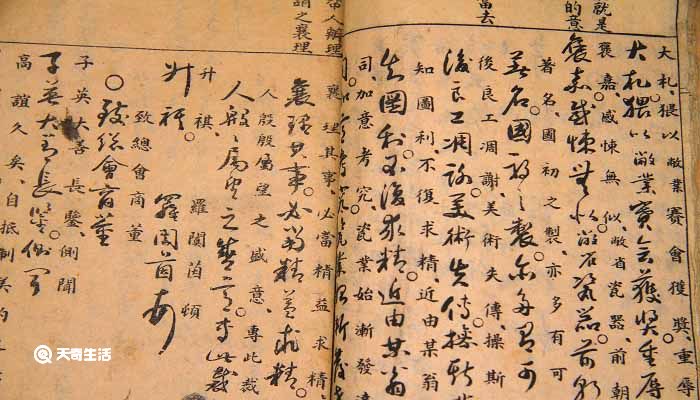 就是
的意
當去
大札。猥以敝業賽會獲獎。重辱
大札。猥以敝業賽會獲獎重辱
褒嘉。感悚無似。敝省瓷器。前朝
褒嘉。感悚無似。敝省瓷器。前朝
著名。國初之製。亦多有可
著名。國初之製。亦多有可
後良工凋謝。美術失傳。操斯
後良工凋謝。美術失傳。操斯
知圖利。不復求精。近由某翁
知圖利。不復求精。近由某翁
司。加意考究。瓷業始漸發達
帝人辦理
謂之襄理
襄理其事。必當精益求精
襄理其事。必當精益求精
人殷殷屬望之盛意。專此裁
人殷殷屬望之盛意。專此裁
升祺。 羅閬茵頓
升祺。 羅閬茵頓
致總會商董
致總會商董
子英大善長鑒側聞
子英大善長鑒側聞
高誼久矣。自抵制美約
天奇生活